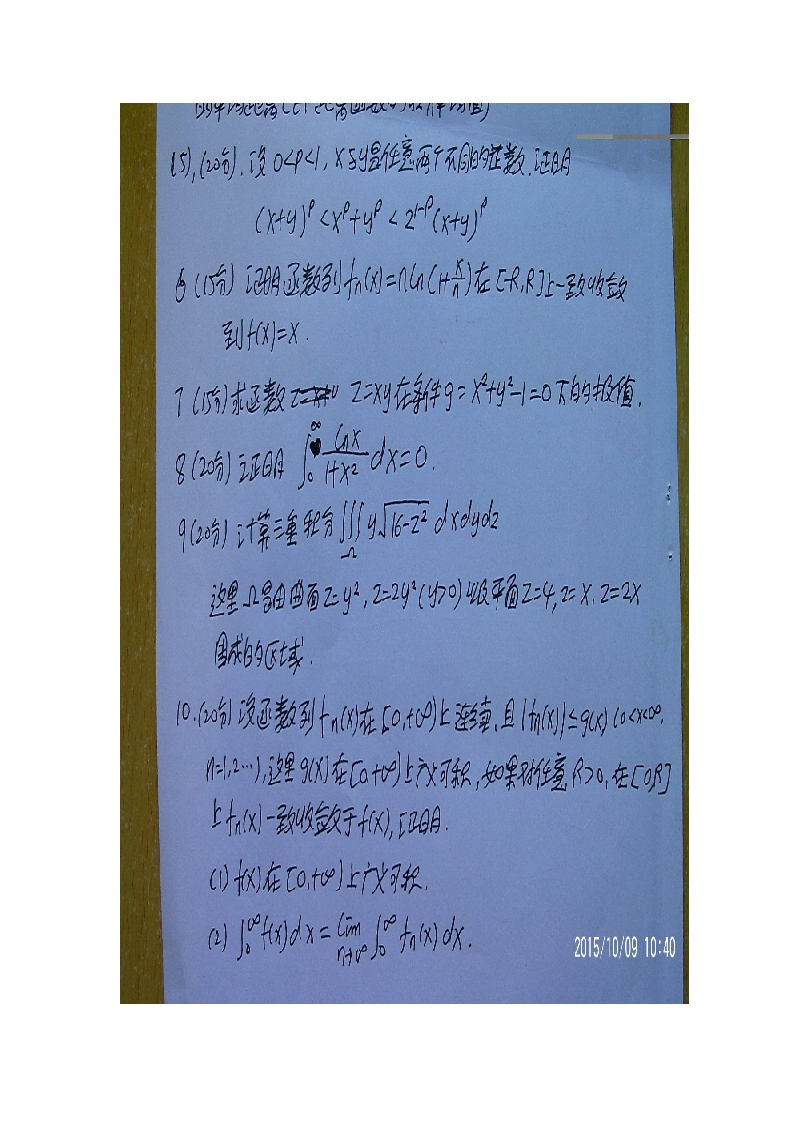 (5),(20分).设 0<p<1, x与y是任意两个不同的正数.证明
(x+y)^p < x^p+y^p < 2^{1-p}(x+y)^p
6 (15分) 证明函数列 fn(x)=n ln(1+x/n) 在[-R,R]上一致收敛
到f(x)=x.
7 (15分)求函数 z=xy在条件g=x²+y²-1=0下的极值.
8 (20分)证明 ∫_0^∞ lnx/(1+x²) dx=0.
9 (20分) 计算三重积分∭_Ω y√(16-z²) dxdydz
这里Ω是由曲面z=y², z=2y²(y>0)以及平面z=4, z=x, z=2x
围成的区域.
10.(20分)设函数列fn(x)在[0,+∞)上连续,且|fn(x)|≤g(x) (0<x<∞,
n=1,2…),这里g(x)在[0,+∞)上广义可积,如果对任意R>0,在[0,R]
上fn(x)一致收敛于f(x),证明.
(1) f(x)在[0,+∞)上广义可积.
(2) ∫_0^∞ f(x)dx = lim_{n→∞} ∫_0^∞ fn(x)dx.
2015/10/09 10:40